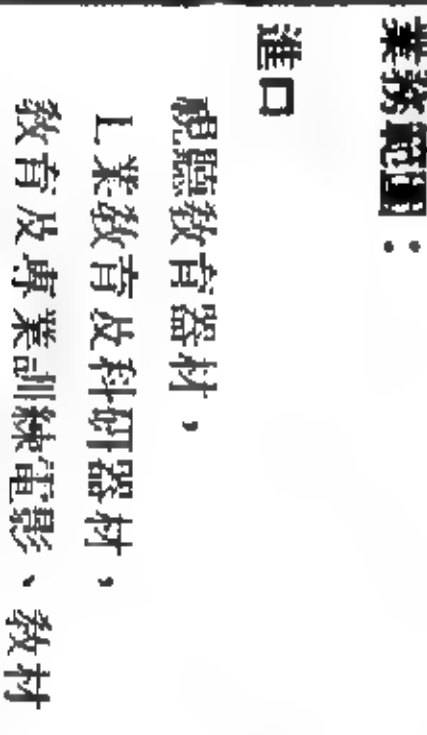 業務範圍：
進口
視聽教育器材，
工業教育及科研器材，
教育及專業訓練電影、教材